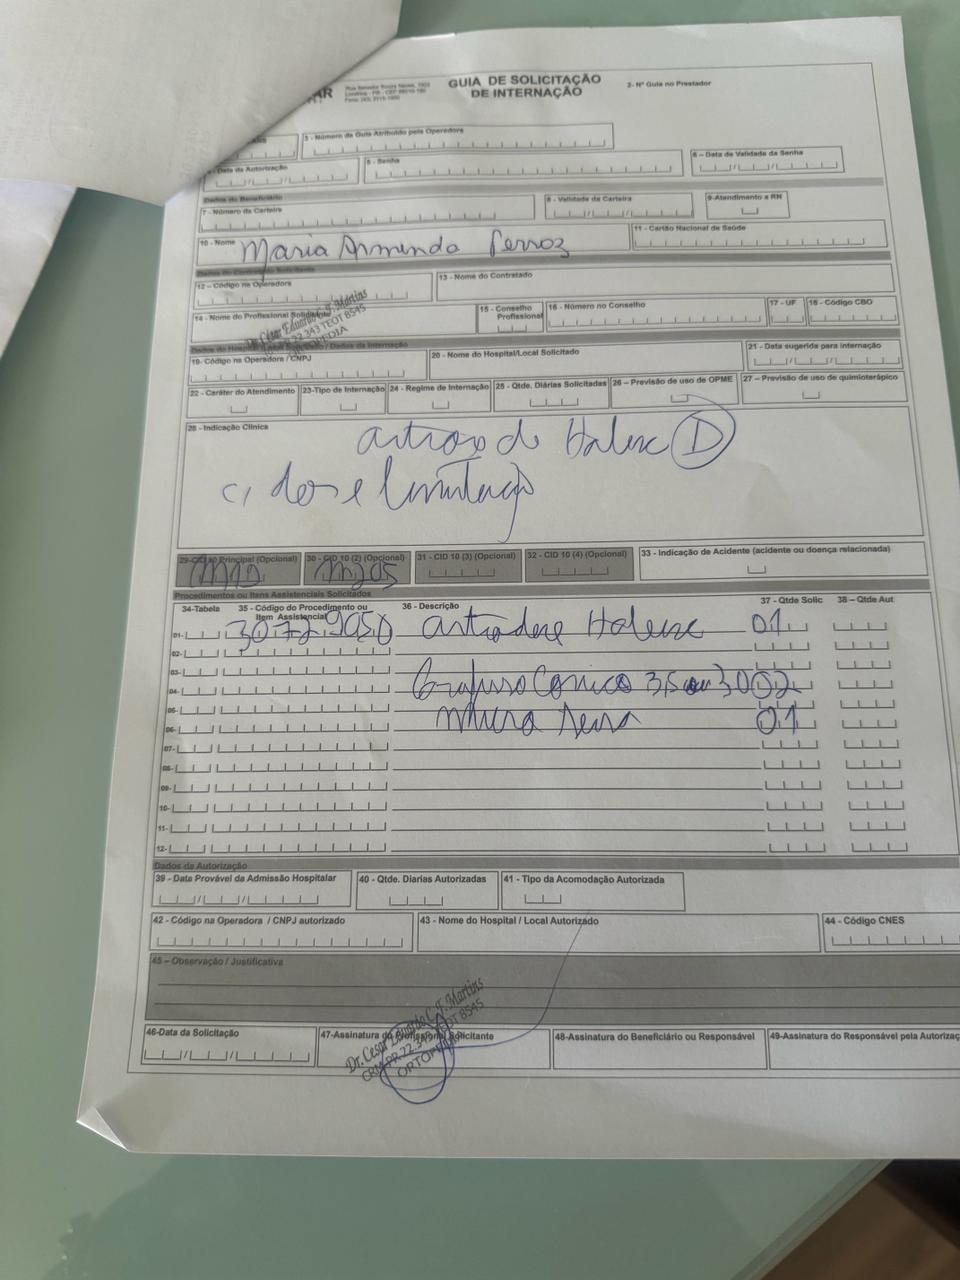 GUIA DE SOLICITAÇÃO
DE INTERNAÇÃO
2- Nº Guia no Prestador
AR
3 - Número da Guia Atribuído pela Operadora
4 - Data da Autorização
5 - Senha
6 – Data de Validade da Senha
Dados do Beneficiário
7 - Número da Carteira
8 - Validade da Carteira
9-Atendimento a RN
10 - Nome Maria Armendo Ferroz
11 - Cartão Nacional de Saúde
Dados do Contratado Solicitante
12 – Código na Operadora
13 - Nome do Contratado
14 - Nome do Profissional Solicitante
15 - Conselho Profissional
16 - Número no Conselho
17 - UF
18 - Código CBO
Dr. César Eduardo C. F. Martins
CRM PR 22.343 TEOT 8545
ORTOPEDIA
Dados do Hospital / Local Solicitado / Dados da Internação
19- Código na Operadora / CNPJ
20 - Nome do Hospital/Local Solicitado
21 - Data sugerida para internação
22 - Caráter do Atendimento
23-Tipo de Internação
24 - Regime de Internação
25 - Qtde. Diárias Solicitadas
26 – Previsão de uso de OPME
27 – Previsão de uso de quimioterápico
28 - Indicação Clínica
artrose do Halux D
c/ dor e limitação
29-CID 10 Principal (Opcional)
30 - CID 10 (2) (Opcional)
31 - CID 10 (3) (Opcional)
32 - CID 10 (4) (Opcional)
33 - Indicação de Acidente (acidente ou doença relacionada)
M205
Procedimentos ou Itens Assistenciais Solicitados
34-Tabela
35 - Código do Procedimento ou Item Assistencial
36 - Descrição
37 - Qtde Solic
38 – Qtde Aut
01- 30729050 artrodese Halux 01
02-
03-
04- Parafuso Conico 3,5 ou 3,0 02
05-
06- micro serra 01
07-
08-
09-
10-
11-
12-
Dados da Autorização
39 - Data Provável da Admissão Hospitalar
40 - Qtde. Diarias Autorizadas
41 - Tipo da Acomodação Autorizada
42 - Código na Operadora / CNPJ autorizado
43 - Nome do Hospital / Local Autorizado
44 - Código CNES
45 – Observação / Justificativa
46-Data da Solicitação
47-Assinatura do Profissional Solicitante
48-Assinatura do Beneficiário ou Responsável
49-Assinatura do Responsável pela Autorizaç
Dr. César Eduardo C. F. Martins
CRM PR 22.343 TEOT 8545
ORTOPEDIA